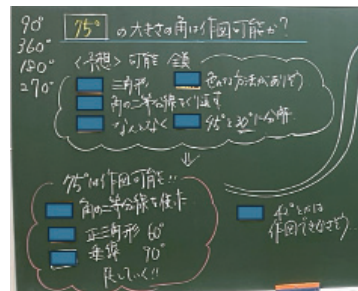 90°
360°
180°
270°
75° の大きさの角は作図可能か?
<予想> 可能 全員
三角形
色々な方法がありそう
角の二等分線をくり返す
なんとなく
45°と30°に分解
⇓
75°は作図可能!!
角の二等分線を使った
正三角形 60°
垂線 90°
42°とかは
作図できなさそう…